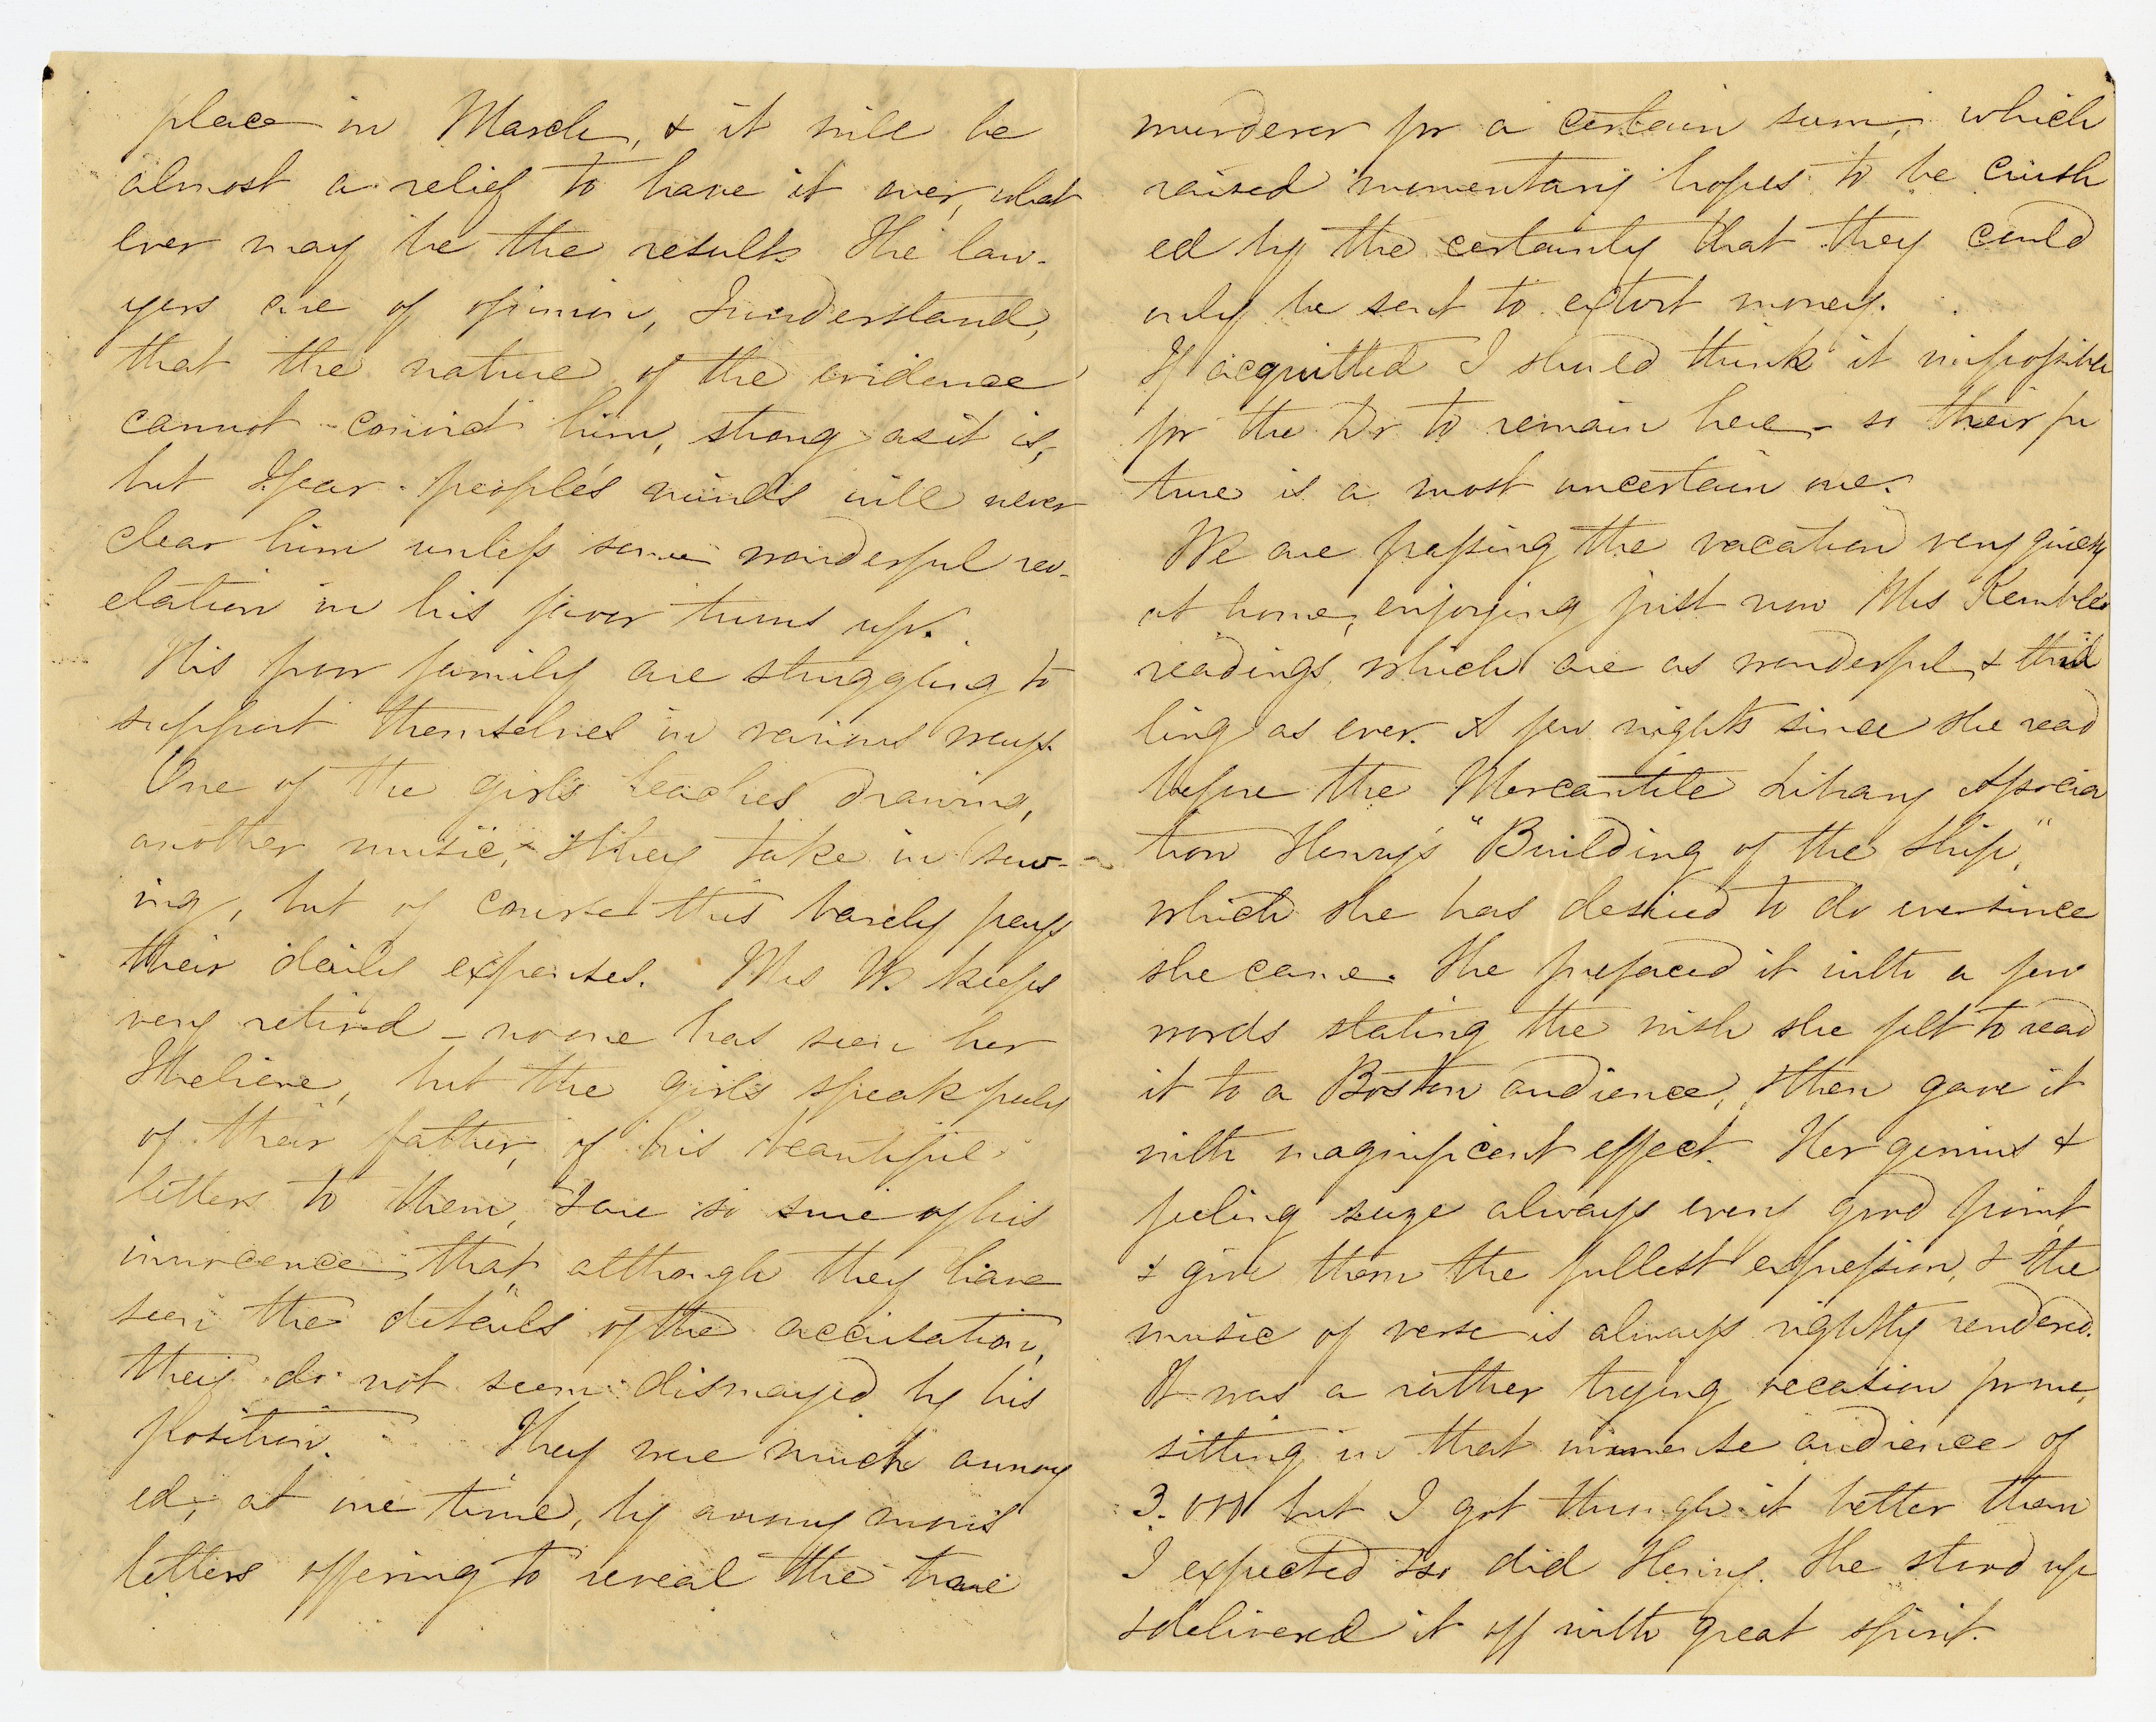 place in March, & it will be
almost a relief to have it over, what
ever may be the result. The law-
yers are of opinion, I understand,
that the nature of the evidence
cannot convict him, strong as it is,
but I fear people's minds will never
clear him unless some wonderful rev-
elation in his favor turns up.
His poor family are struggling to
support themselves in various ways.
One of the girls teaches drawing,
another music, & they take in sew-
ing, but of course this barely pays
their daily expenses. Mrs W. keeps
very retired – no one has seen her
I believe, but the girls speak freely
of their father, of his beautiful
letters to them, & are so sure of his
innocence, that, although they have
seen the details of the accusation,
they do not seem dismayed by his
position. They were much annoy
ed, at one time, by anonymous
letters offering to reveal the true
murderer for a certain sum, which
raised momentary hopes to be crush
ed by the certainty that they could
only be sent to extort money.
If acquitted I should think it impossible
for the Dr to remain here – so their fu
ture is a most uncertain one.
We are passing the vacation very quietly
at home, enjoying just now Mrs Kemble's
readings, which are as wonderful & thril
ling as ever. A few nights since she read
before the Mercantile Library Associa
tion Henry's "Building of the Ship,"
which she has desired to do ever since
she came. She prefaced it with a few
words stating the wish she felt to read
it to a Boston audience, & then gave it
with magnificent effect. Her genius &
feeling seize always every good point,
& give them the fullest expression, & the
music of verse is always rightly rendered.
It was a rather trying occasion for me,
sitting in that immense audience of
3.000 but I got through it better than
I expected & so did Henry. She stood up
& delivered it off with great spirit.